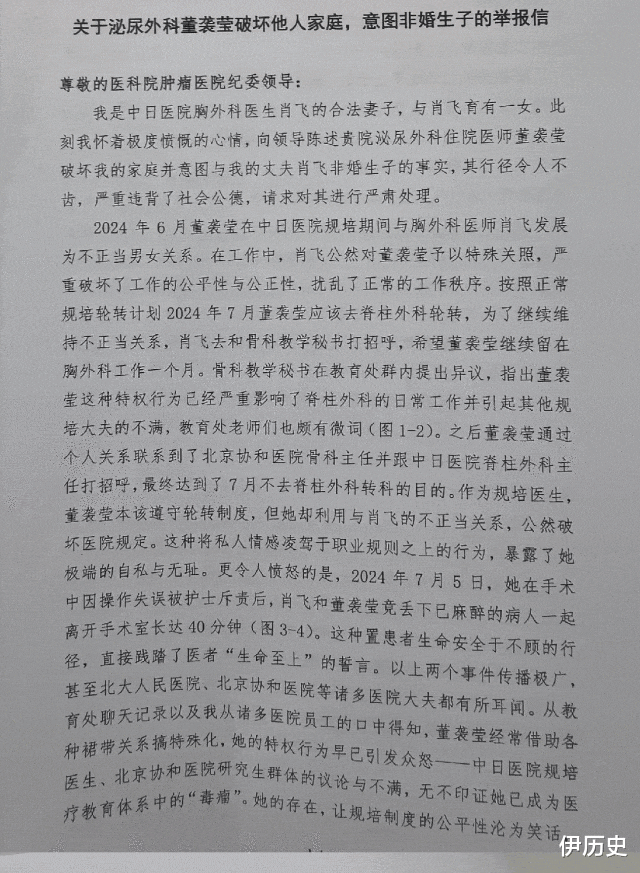 关于泌尿外科董袭莹破坏他人家庭，意图非婚生子的举报信
尊敬的医科院肿瘤医院纪委领导：
我是中日医院胸外科医生肖飞的合法妻子，与肖飞育有一女。此
刻我怀着极度愤慨的心情，向领导陈述贵院泌尿外科住院医师董袭莹
破坏我的家庭并意图与我的丈夫肖飞非婚生子的事实，其行径令人不
齿，严重违背了社会公德，请求对其进行严肃处理。
2024 年 6 月董袭莹在中日医院规培期间与胸外科医师肖飞发展
为不正当男女关系。在工作中，肖飞公然对董袭莹予以特殊关照，严
重破坏了工作的公平性与公正性，扰乱了正常的工作秩序。按照正常
规培轮转计划 2024 年 7 月董袭莹应该去脊柱外科轮转，为了继续维
持不正当关系，肖飞去和骨科教学秘书打招呼，希望董袭莹继续留在
胸外科工作一个月。骨科教学秘书在教育处群内提出异议，指出董袭
莹这种特权行为已经严重影响了脊柱外科的日常工作并引起其他规
培大夫的不满，教育处老师们也颇有微词（图 1-2）。之后董袭莹通过
个人关系联系到了北京协和医院骨科主任并跟中日医院脊柱外科主
任打招呼，最终达到了 7 月不去脊柱外科转科的目的。作为规培医生，
董袭莹本该遵守轮转制度，但她却利用与肖飞的不正当关系，公然破
坏医院规定。这种将私人情感凌驾于职业规则之上的行为，暴露了她
极端的自私与无耻。更令人愤怒的是，2024 年 7 月 5 日，她在手术
中因操作失误被护士斥责后，肖飞和董袭莹竟丢下已麻醉的病人一起
离开手术室长达 40 分钟（图 3-4）。这种置患者生命安全于不顾的行
径，直接践踏了医者“生命至上”的誓言。以上两个事件传播极广，
甚至北大人民医院、北京协和医院等诸多医院大夫都有所耳闻。从教
育处聊天记录以及我从诸多医院员工的口中得知，董袭莹经常借助各
种裙带关系搞特殊化，她的特权行为早已引发众怒——中日医院规培
医生、北京协和医院研究生群体的议论与不满，无不印证她已成为医
疗教育体系中的“毒瘤”。她的存在，让规培制度的公平性沦为笑话，
伊历史